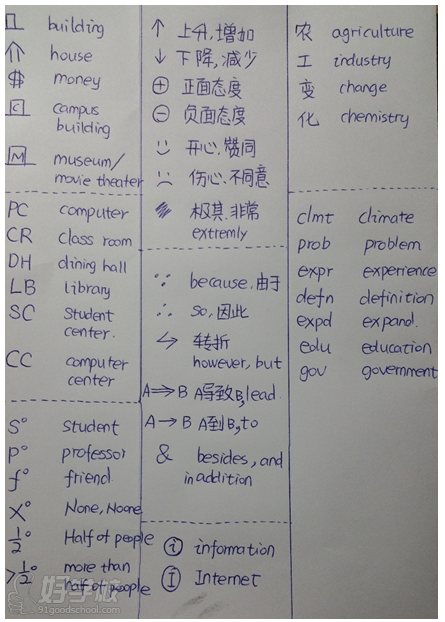 building
house
$ money
C campus
building
M museum/
movie theater
PC computer
CR class room
DH dining hall
LB library
SC student
center.
CC computer
center
S° student
P° professor
f° friend
X° None, Noone
½° Half of people
>½° more than
half of people
↑ 上升,增加
↓ 下降,减少
⊕ 正面态度
⊖ 负面态度
开心.赞同
伤心.不同意
极其.非常
extremly
∵ because.由于
∴ so,因此
转折
however, but
A⇒B A导致B,lead
A→B A到B,to
& besides, and
in addition
i information
I Internet
农 agriculture
工 industry
变 change
化 chemistry
clmt climate
prob problem
expr experience
defn definition
expd expand.
edu education
gov government
好学校
91goodschool.com